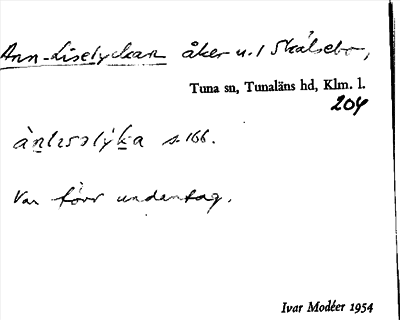 Ann-Liselyckan åker u. 1 Skälsebo,
Tuna sn, Tunaläns hd, Klm. l.
204
s. 166.
Var förr undantag.
Ivar Modéer 1954